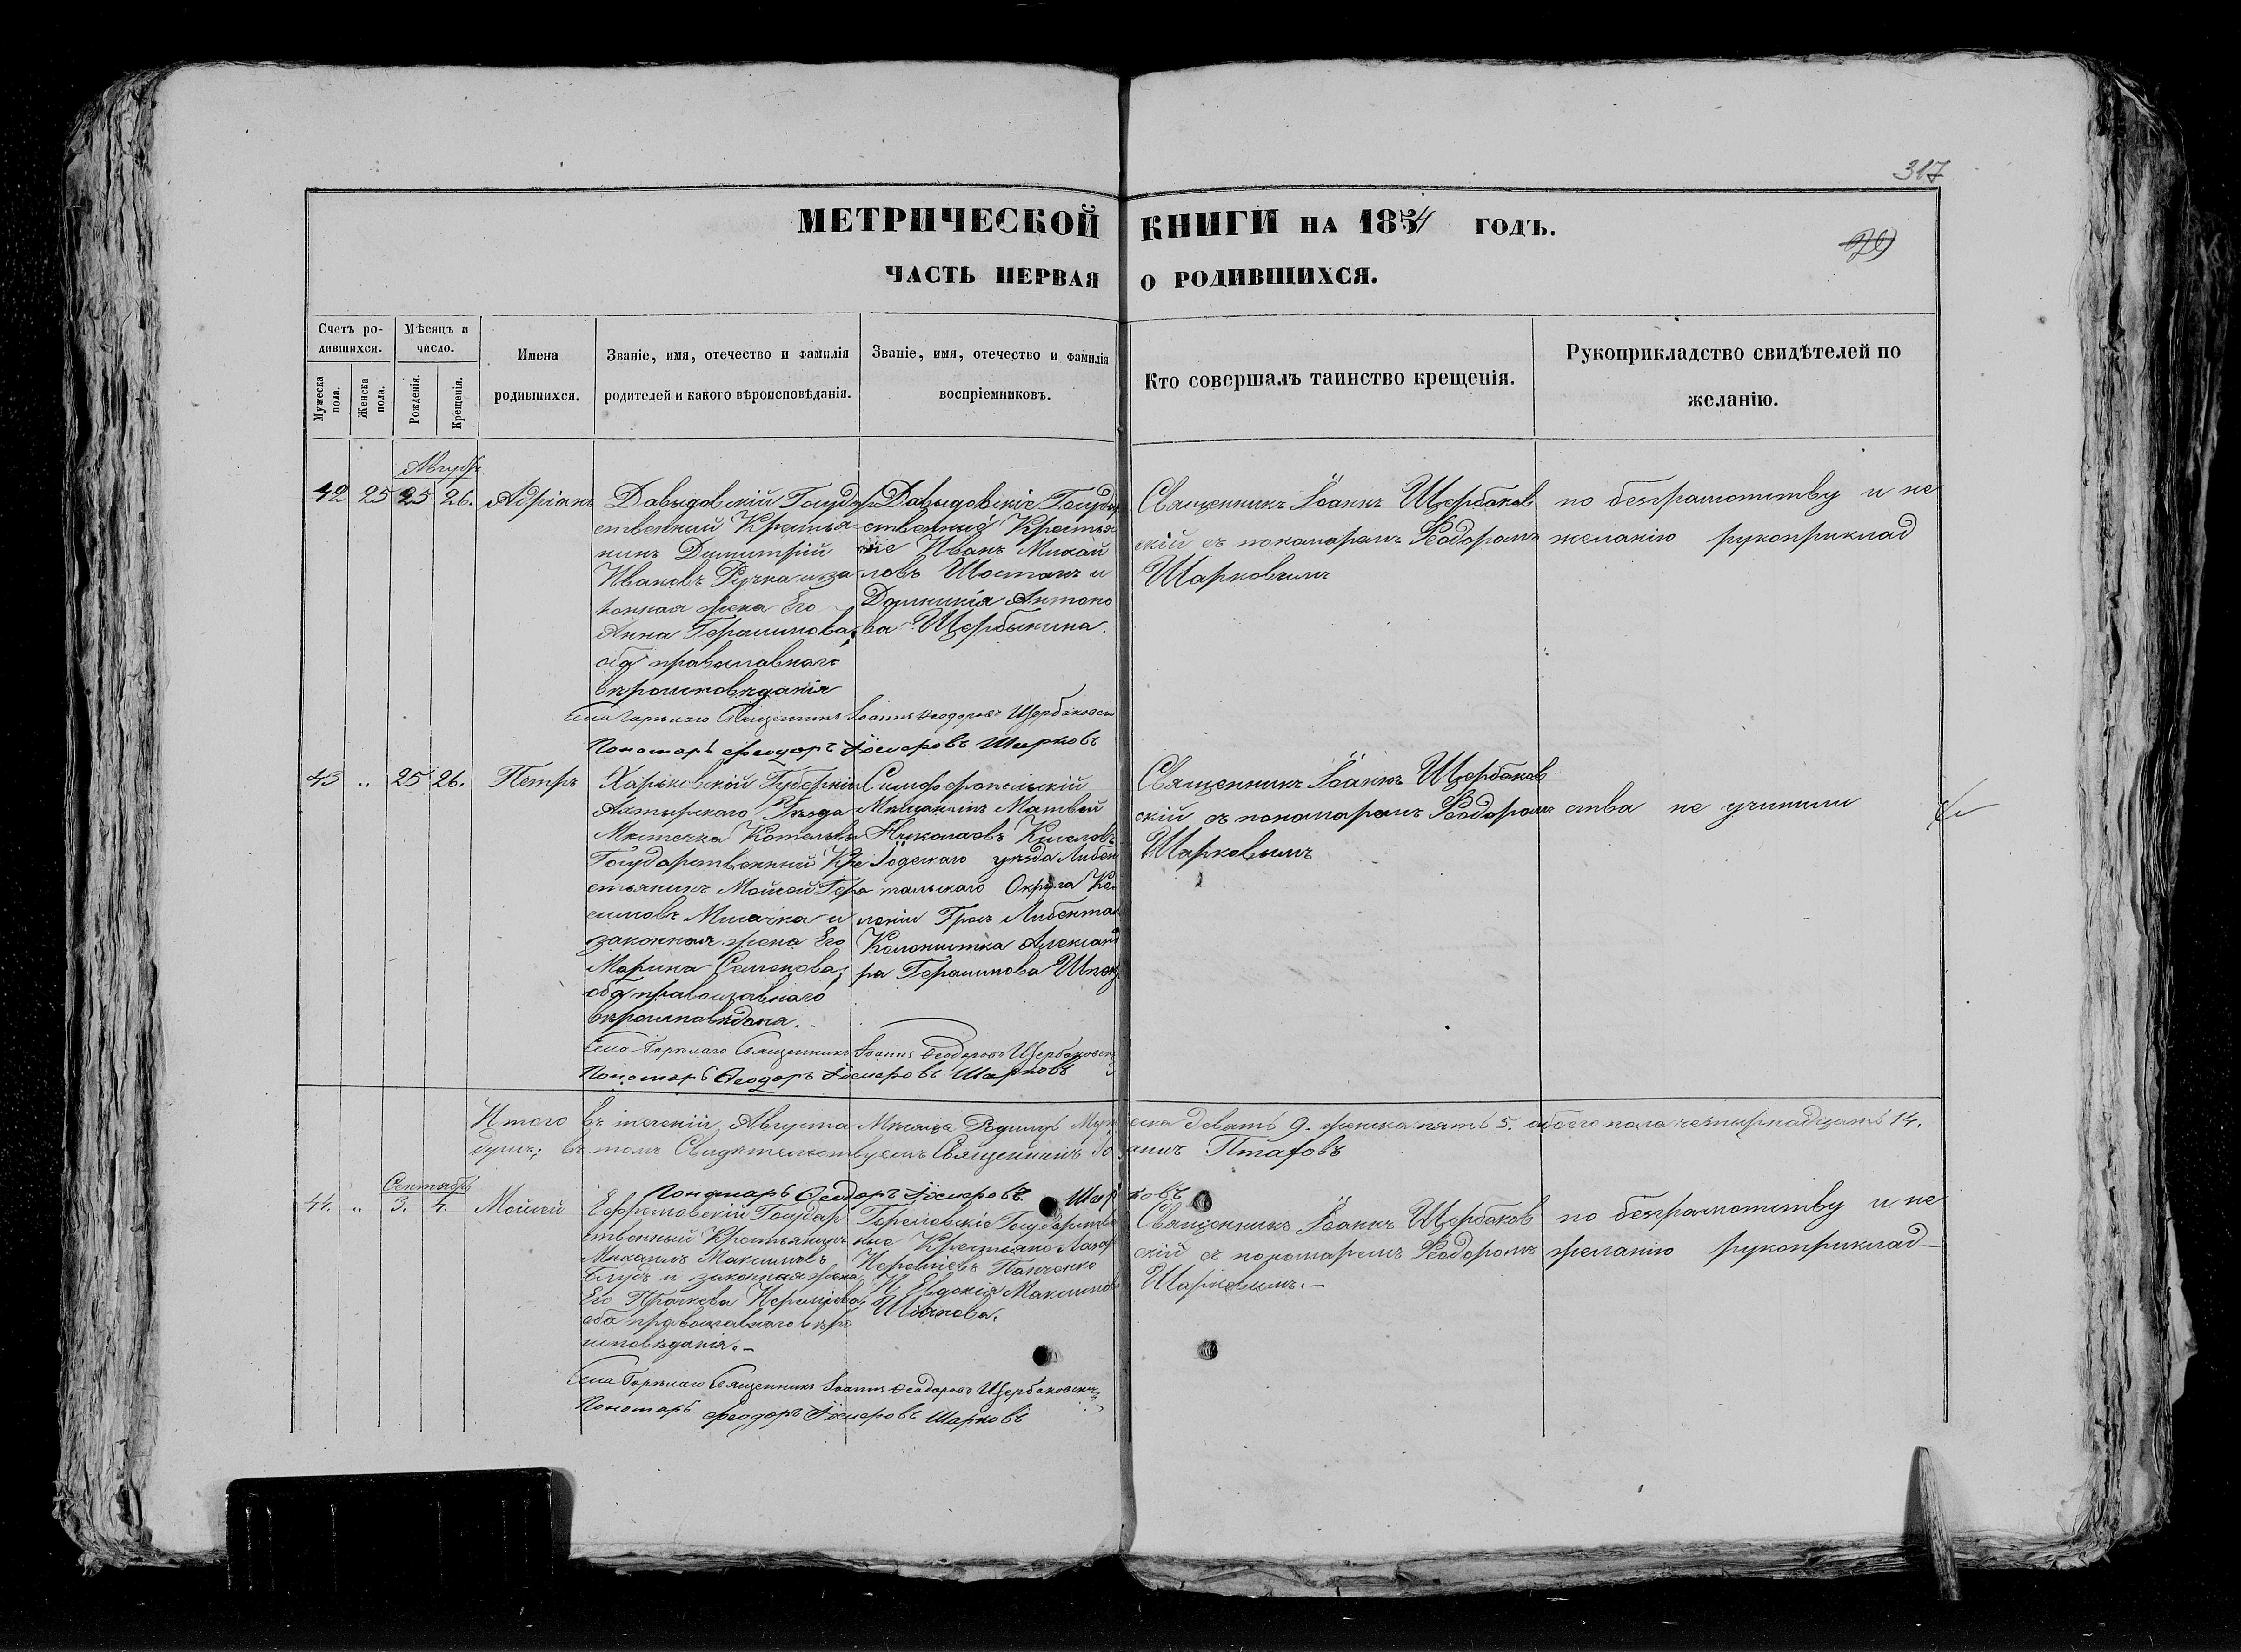 317
МЕТРИЧЕСКОЙ КНИГИ НА 1854 ГОДЪ.
ЧАСТЬ ПЕРВАЯ О РОДИВШИХСЯ.
Счетъ родившихся.
Мужеска пола.
Женска пола.
Мѣсяцъ и число.
Рожденія.
Крещенія.
Имена родившихся.
Званіе, имя, отечество и фамилія родителей и какого вѣроисповѣданія.
Званіе, имя, отечество и фамилія воспріемниковъ.
Кто совершалъ таинство крещенія.
Рукоприкладство свидѣтелей по желанію.
42 25 25 26. Адріанъ
Давыдовскій Государ
ственный Крестья
нинъ Димитрій
Ивановъ Ручка и за
конная жена Его
Анна Герасимова,
оба православнаго
вѣроисповѣданія
Давыдовскіе Государ
ственные Крестья
не Иванъ Михай
ловъ Шостакъ и
Домникія Антоно
ва Щербинина.
Священникъ Іоаннъ Щербаков
скій съ пономаремъ Ѳеодоромъ
Шарковымъ
по безграмотству и не
желанію рукоприклад
Священникъ Іоаннъ Ѳеодоровъ Щербаковскій
Пономарь Ѳеодоръ Шарковъ
43 .. 25 26. Петръ
Харьковской Губерніи
Ахтырскаго Уѣзда
Мѣстечка Котельвы
Государственный Кре
стьянинъ Мойсей Гера
симовъ и
законная жена Его
Марина Семенова,
оба православнаго
вѣроисповѣданія.
Симферопольскій
Мѣщанинъ Матвей
Николаевъ Киселевъ
Одескаго уѣзда Либен
тальскаго Округа Ко
лоніи Грос Либенталь
Колонистка Александ
ра Герасимова
Священникъ Іоаннъ Щербаков
скій съ пономаремъ Ѳеодоромъ
Шарковымъ
ства не учинили
Священникъ Іоаннъ Ѳеодоровъ Щербаковскій
Пономарь Ѳеодоръ Шарковъ
Итого въ теченіи Августа Мѣсяца Родилось Мужеска девять 9. женска пять 5. обоего пола четырнадцать 14.
душъ; въ томъ Свидѣтельствуемъ Священникъ Іоаннъ
Пономарь Ѳеодоръ Шарковъ
Сентябрь
44. .. 3. 4. Мойсей
Ефремовскій Государ
ственный Крестьянинъ
Михаилъ Максимовъ
и законная жена
Его
оба православнаго вѣро
исповѣданія.
Горѣловскіе Государстве
ные Крестьяне Лазарь
Панченко
и Евдокія Максимова
Священникъ Іоаннъ Щербаков
скій съ пономаремъ Ѳеодоромъ
Шарковымъ.
по безграмотству и не
желанію рукоприклад
Священникъ Іоаннъ Ѳеодоровъ Щербаковскій
Пономарь Ѳеодоръ Шарковъ